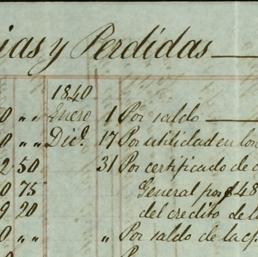 ias y Perdidas
1840
0 " " Enero 1 Por saldo
0 " " Dic.e 17 Por utilidad en los
2 50 31 Por certificado de
0 75 General por $48
9 20 del credito de l
" " " Por saldo de la